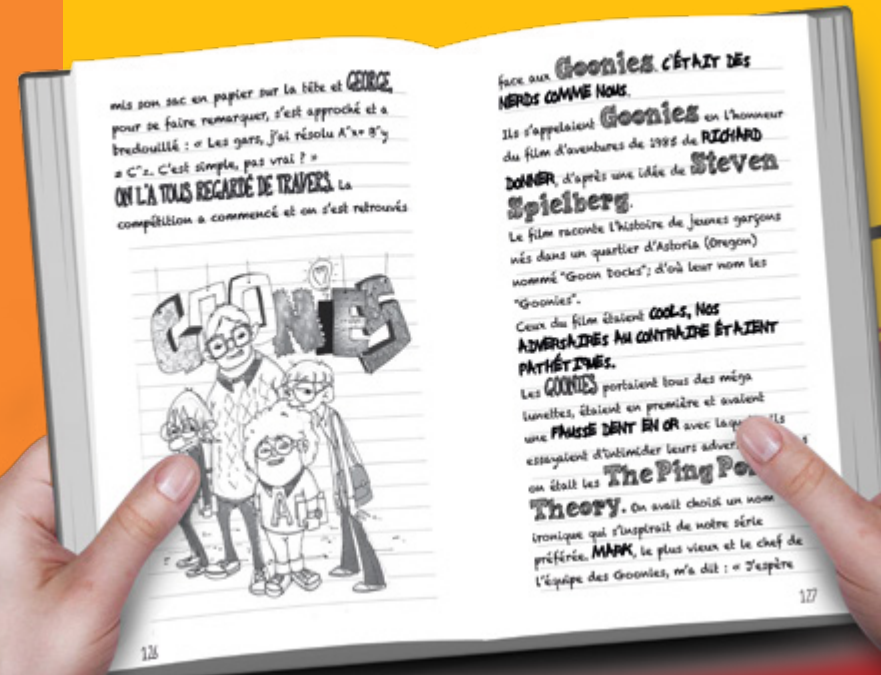 mis son sac en papier sur la tête et GEORGE,
pour se faire remarquer, s'est approché et a
bredouillé : « Les gars, j'ai résolu A^x+ B^y
= C^z. C'est simple, pas vrai ? »
ON L'A TOUS REGARDÉ DE TRAVERS. La
compétition a commencé et on s'est retrouvés
GOONiES
A
126
face aux Goonies. C'ÉTAIT DES
NERDS COMME NOUS.
Ils s'appelaient Goonies en l'honneur
du film d'aventures de 1985 de RICHARD
DONNER, d'après une idée de Steven
Spielberg.
Le film raconte l'histoire de jeunes garçons
nés dans un quartier d'Astoria (Oregon)
nommé "Goon Docks"; d'où leur nom les
"Goonies".
Ceux du film étaient COOLS, NOS
ADVERSAIRES AU CONTRAIRE ÉTAIENT
PATHÉTIQUES.
Les GOONIES portaient tous des méga
lunettes, étaient en première et avaient
une FAUSSE DENT EN OR avec ils
essayaient d'intimider leurs
on était les The Ping
Theory. On avait choisi un nom
ironique qui s'inspirait de notre série
préférée. MARK, le plus vieux et le chef de
l'équipe des Goonies, m'a dit : « J'espère
127